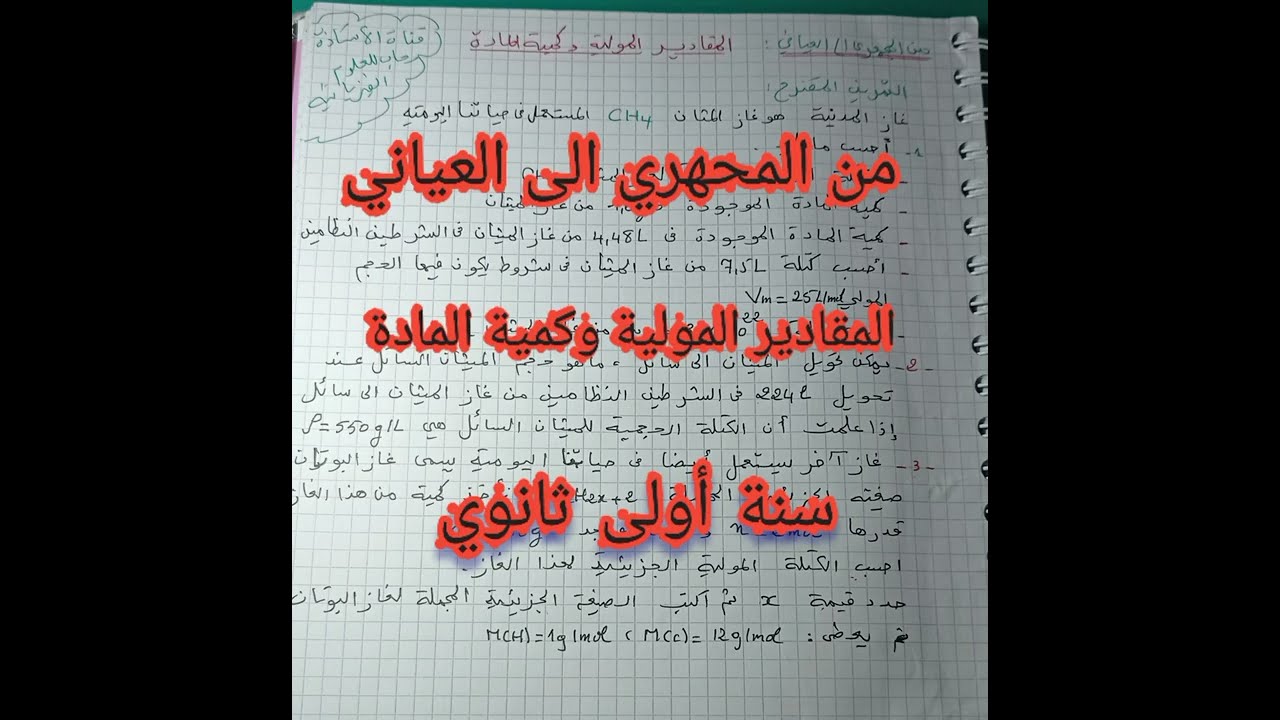 من المجهري الى العياني: المقادير المولية وكمية المادة
قناة الأستاذة
رحاب للعلوم
الفيزيائية
التمرين المقترح:
غاز المدينة هو غاز الميثان CH4 المستعمل في حياتنا اليومية
1- أحسب
من المجهري الى العياني
- كمية المادة الموجودة من غاز الميثان
- كمية المادة الموجودة في 4,48L من غاز الميثان في الشرطين النظاميين
- أحسب كتلة 7,5L من غاز الميثان في شروط يكون فيها الحجم
المولي Vm = 25L/mol
المقادير المولية وكمية المادة
2- يمكن تحويل الميثان الى سائل، ماهو حجم الميثان السائل عند
تحويل 224L في الشرطين النظاميين من غاز الميثان الى سائل
إذا علمت أن الكتلة الحجمية للميثان السائل هي ρ=550g/L
3- غاز آخر يستعمل أيضا في حياتنا اليومية يسمى غاز البوتان
صيغته H2x+2 كمية من هذا الغاز
سنة أولى ثانوي
قدرها
احسب الكتلة المولية الجزيئية لهذا الغاز.
حدد قيمة x ثم اكتب الصيغة الجزيئية المجملة لغاز البوتان
يعطى: M(H)=1g/mol ( M(C)= 12g/mol